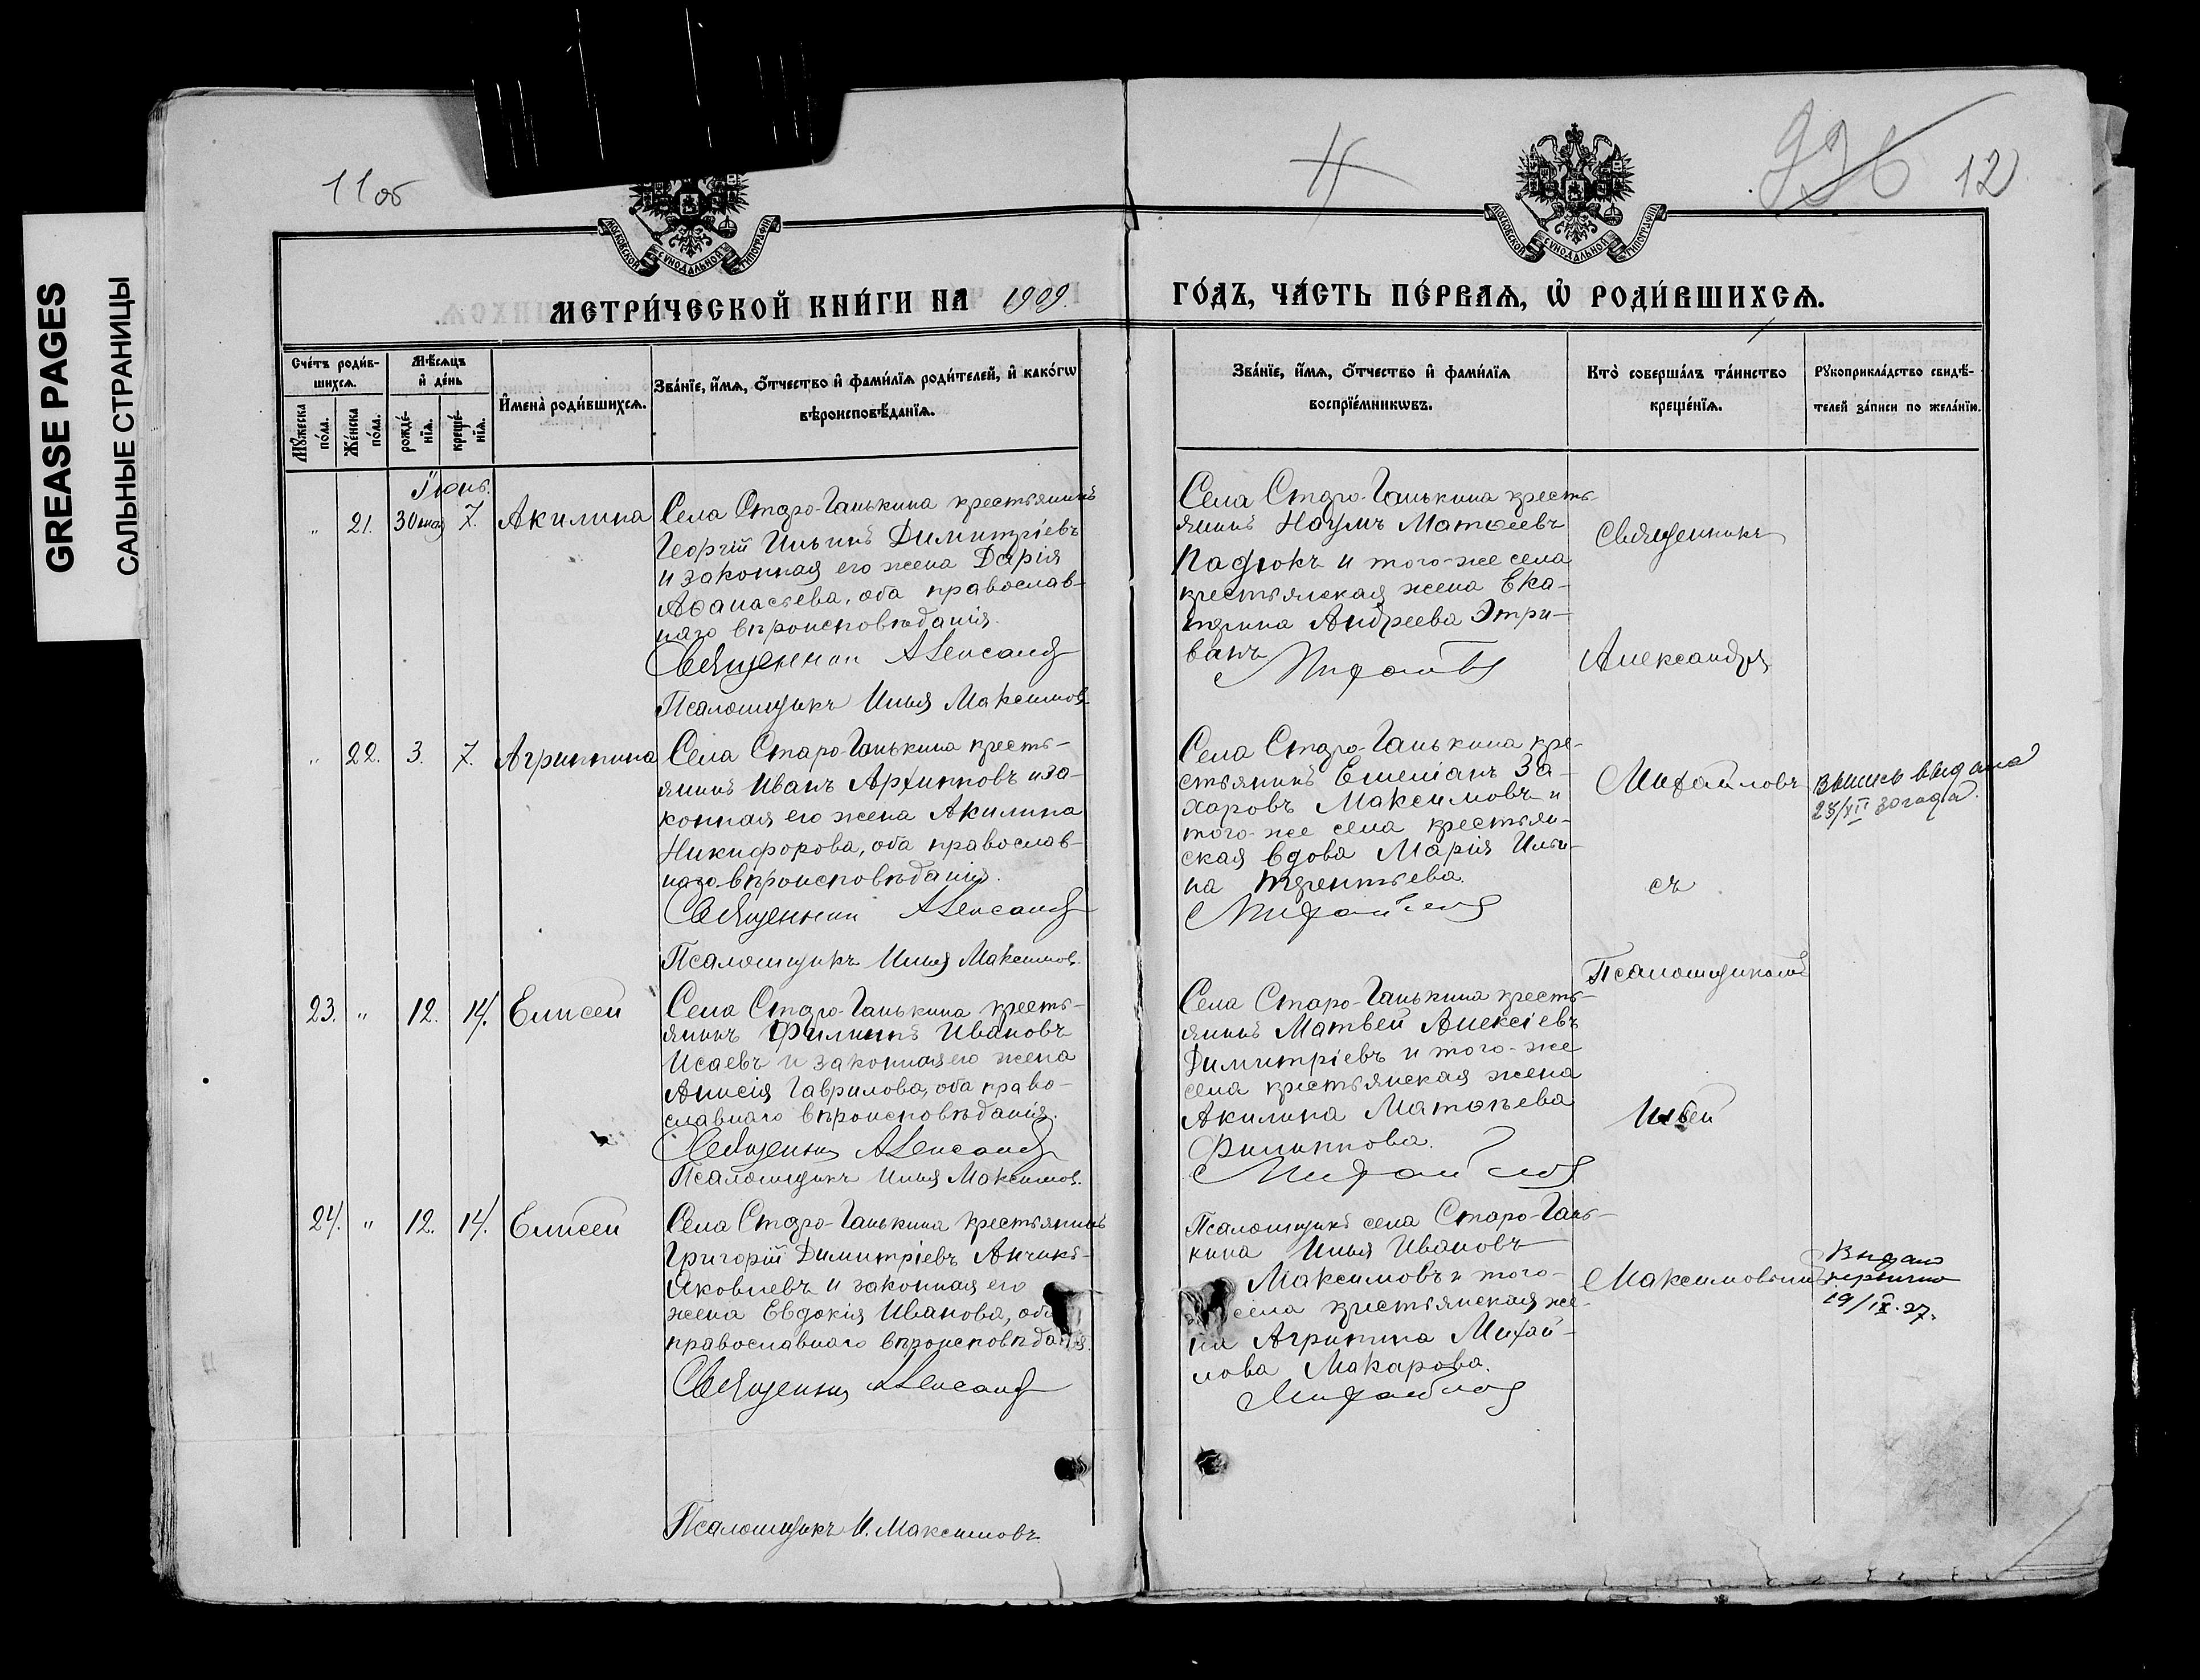 GREASE PAGES
САЛЬНЫЕ СТРАНИЦЫ
11об
12
МОСКОВСКОЙ СѴНОДАЛЬНОЙ ТИПОГРАФІИ
МОСКОВСКОЙ СѴНОДАЛЬНОЙ ТИПОГРАФІИ
МЕТРИ́ЧЕСКОЙ КНИ́ГИ НА 1909.
ГО́ДЪ, ЧА́СТЬ ПЕ́РВАѦ, Ѡ҆ РОДИ́ВШИХСѦ.
Сче́тъ роди́в-
шихсѧ.
Мѣ́сѧцъ
и҆ де́нь
Мꙋ́жеска
по́ла.
Же́нска
по́ла.
рожде́-
нїѧ.
креще́-
нїѧ.
И҆мена̀ роди́вшихсѧ.
Зва́нїе, и҆́мѧ, ѻ҆́тчество и҆ фами́лїѧ роди́телей, и҆ како́гѡ
вѣроисповѣ́данїѧ.
Зва́нїе, и҆́мѧ, ѻ҆́тчество и҆ фами́лїѧ
воспрїе́мникѡвъ.
Кто̀ соверша́лъ та́инство
креще́нїѧ.
Рꙋкоприкла́дство свидѣ́-
телей за́писи по жела́нїю.
Іюнь.
" 21. 30 мая 7. Акилина
Села Старо-Ганькина крестьянинъ
Георгій Ильинъ Димитріевъ
и законная его жена Дарія
Аѳанасьева, оба православ-
наго вѣроисповѣданія.
Священник Александр
Псаломщикъ Илья Максимов
Села Старо-Ганькина кресть-
янинъ Наумъ Матѳеевъ
Падюкъ и того-же села
крестьянская жена Ека-
терина Андреева Этри-
ванъ
Священникъ
Александръ
" 22. 3. 7. Агриппина
Села Старо-Ганькина кресть-
янинъ Иванъ Архипповъ и за-
конная его жена Акилина
Никифорова, оба православ-
наго вѣроисповѣданія.
Священник Александр
Псаломщикъ Илья Максимов.
Села Старо-Ганькина кре-
стьянинъ Емеліанъ За-
харовъ Максимовъ и
того-же села крестьян-
ская вдова Марія Ильи-
на Терентьева.
Михайлов
Михайловъ
съ
Псаломщикомъ
выпись выдана
28/VII 30 года.
23. " 12. 14. Елисей
Села Старо-Ганькина кресть-
янинъ Филиппъ Ивановъ
Исаевъ и законная его жена
Анисія Гаврилова, оба право-
славнаго вѣроисповѣданія.
Священник Александр
Псаломщикъ Илья Максимов.
Села Старо-Ганькина кресть-
янинъ Матвей Алексіевъ
Димитріевъ и того-же
села крестьянская жена
Акилина Матѳьева
Филиппова.
Михайлов
Ильей
24. " 12. 14. Елисей
Села Старо-Ганькина крестьянинъ
Григорій Димитріевъ
Яковлевъ и законная его
жена Евдокія Иванова, оба
православнаго вѣроисповѣданія.
Священник Александр
Псаломщикъ И. Максимовъ
Псаломщикъ села Старо-Гань-
кина Илья Ивановъ
Максимовъ и того-
села крестьянская же-
на Агрипина Михай-
лова Макарова.
Михайлов
Максимовымъ
Выдано
19/IX.27.